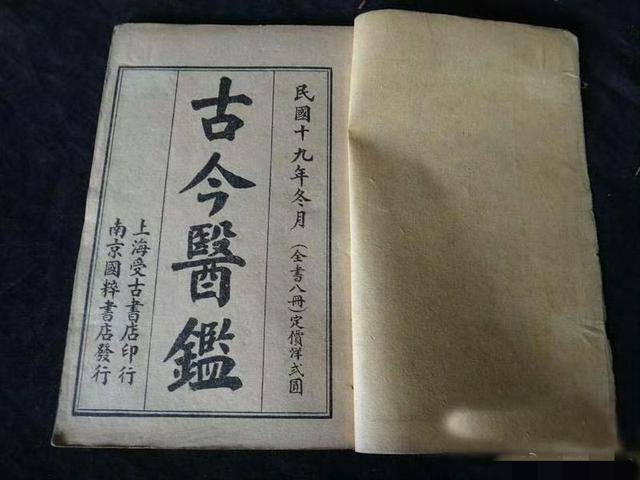 民國十九年冬月(全書八冊)定價洋弍圓
古今醫鑑
上海受古書店印行
南京國粹書店發行